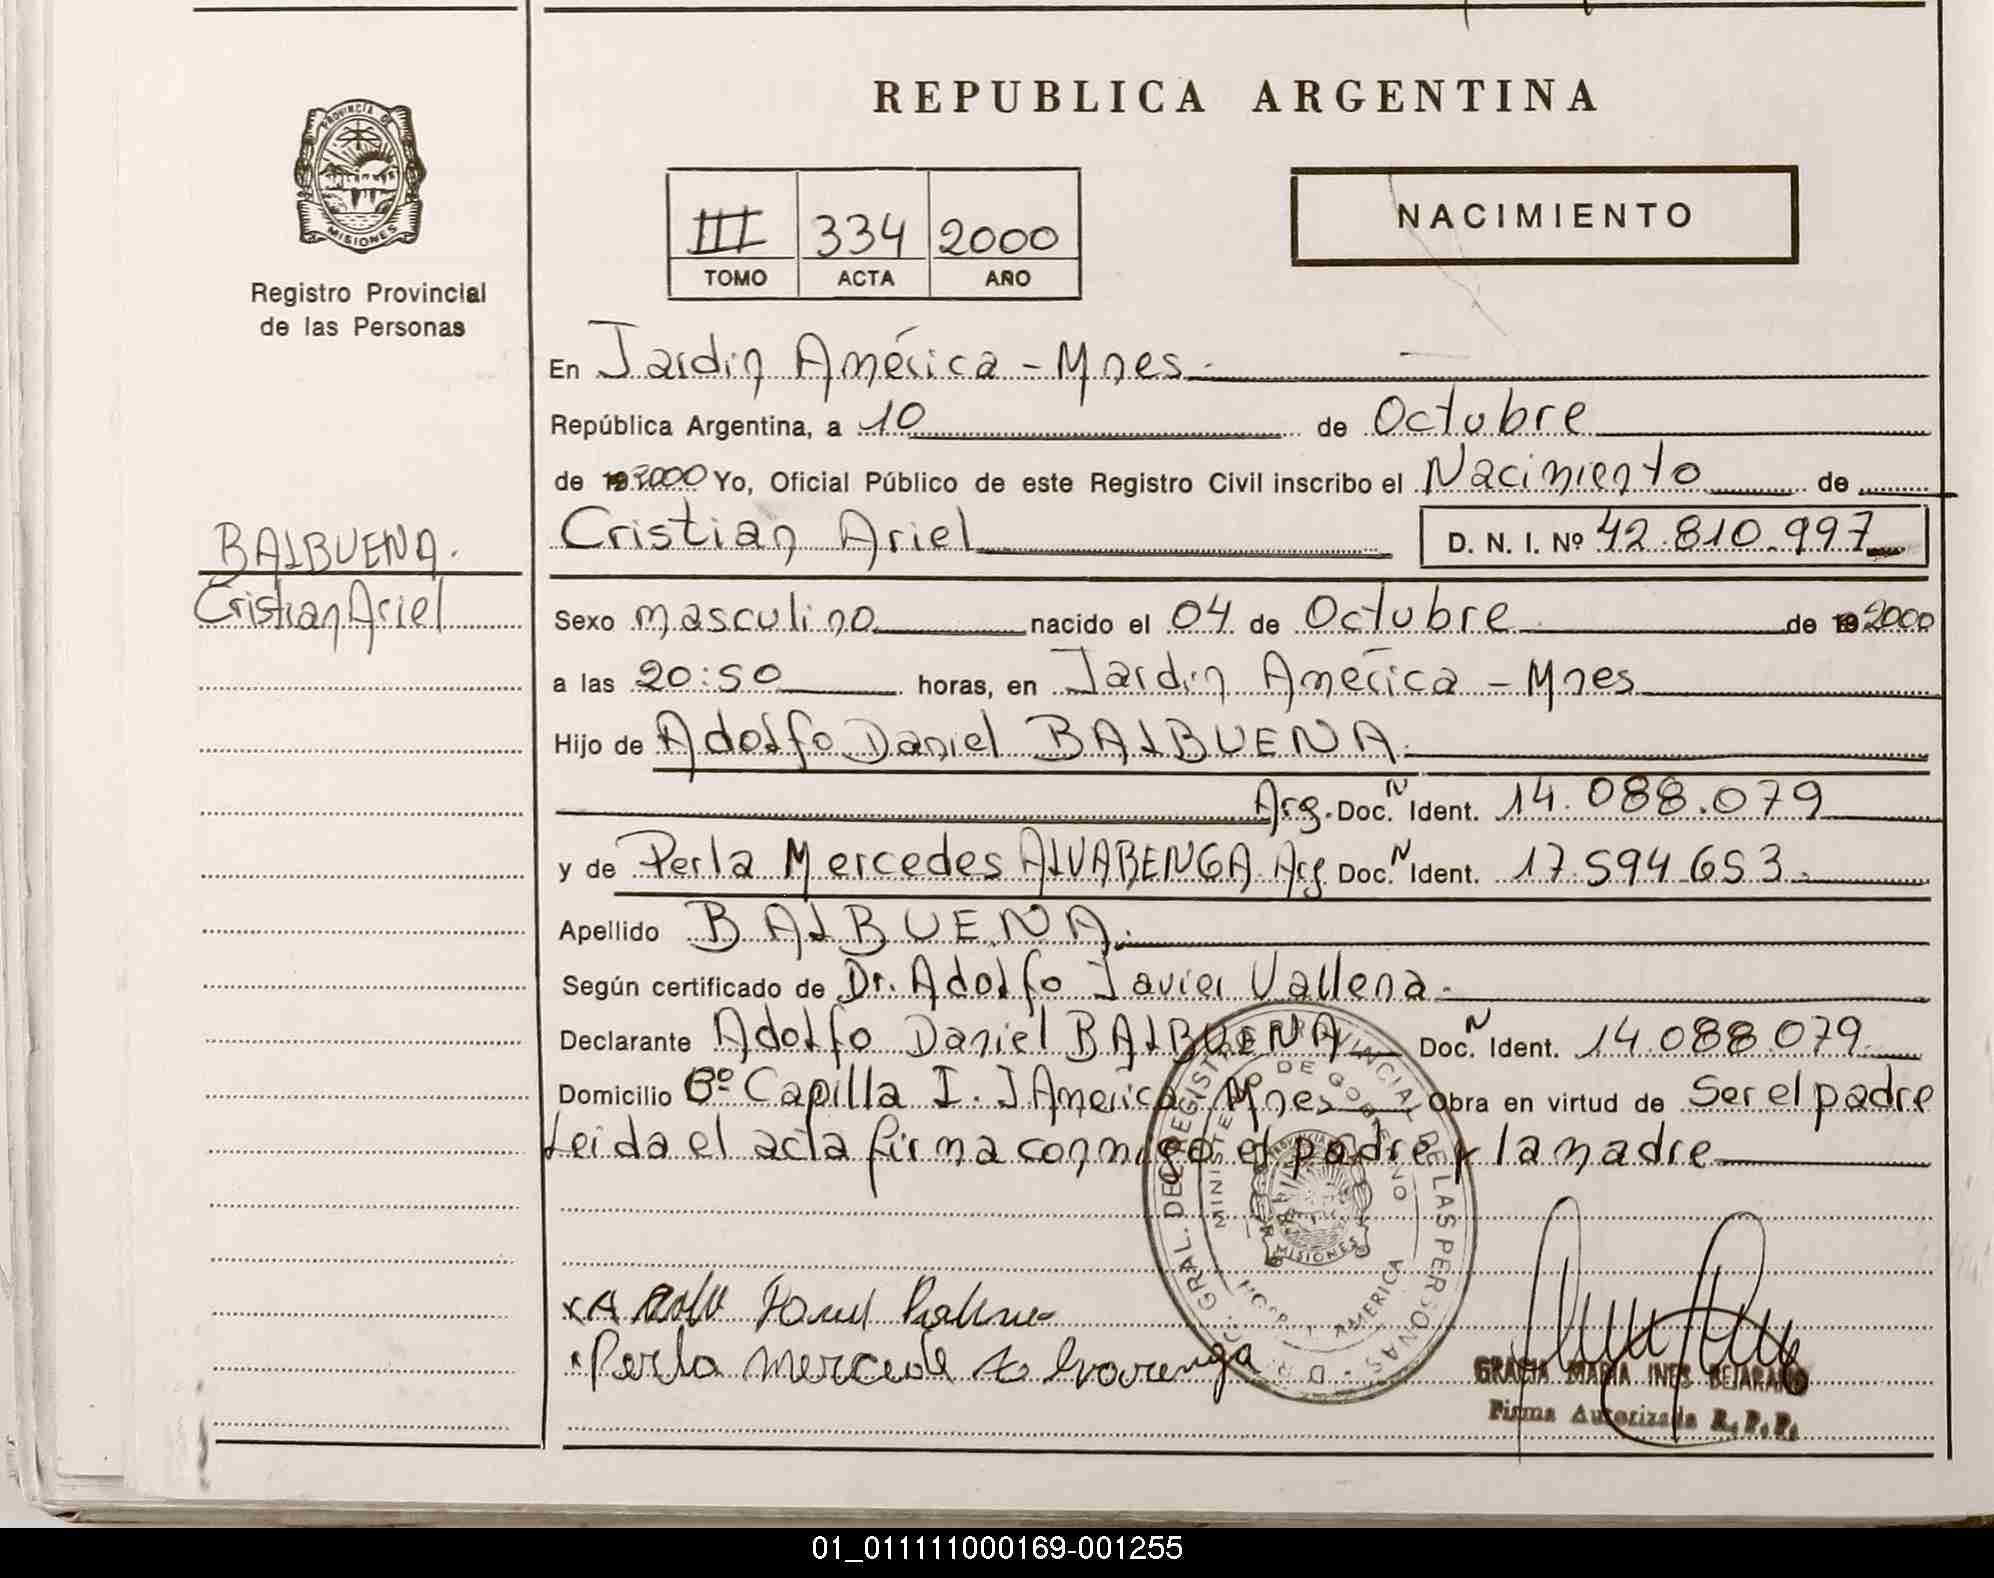 REPUBLICA ARGENTINA
PROVINCIA DE
MISIONES
Registro Provincial
de las Personas
III 334 2000
TOMO ACTA AÑO
NACIMIENTO
En Jardin América - Mnes.
República Argentina, a 10 de Octubre
de 19 2000 Yo, Oficial Público de este Registro Civil inscribo el Nacimiento de
Cristian Ariel D. N. I. Nº 42.810.997
BALBUENA.
Cristian Ariel
Sexo masculino nacido el 04 de Octubre de 19 2000
a las 20:50 horas, en Jardin América - Mnes
Hijo de Adolfo Daniel BALBUENA.
Arg. Doc. N Ident. 14.088.079
y de Perla Mercedes ALVARENGA. Arg Doc. N Ident. 17.594.653.
Apellido BALBUENA.
Según certificado de Dr. Adolfo Javier Vallena.
Declarante Adolfo Daniel BALBUENA Doc. N Ident. 14.088.079
Domicilio Bº Capilla I. J America Mnes Obra en virtud de Ser el padre
Leida el acta firma conmigo el padre y la madre
DE REGISTRO PROVINCIAL DE LAS PERSONAS
GRAL.
MINISTERIO DE GOBIERNO
MISIONES
AMERICA
Perla mercede
GRACIA MARIA INES BEJARANO
Firma Autorizada R. P. P.
01_011111000169-001255